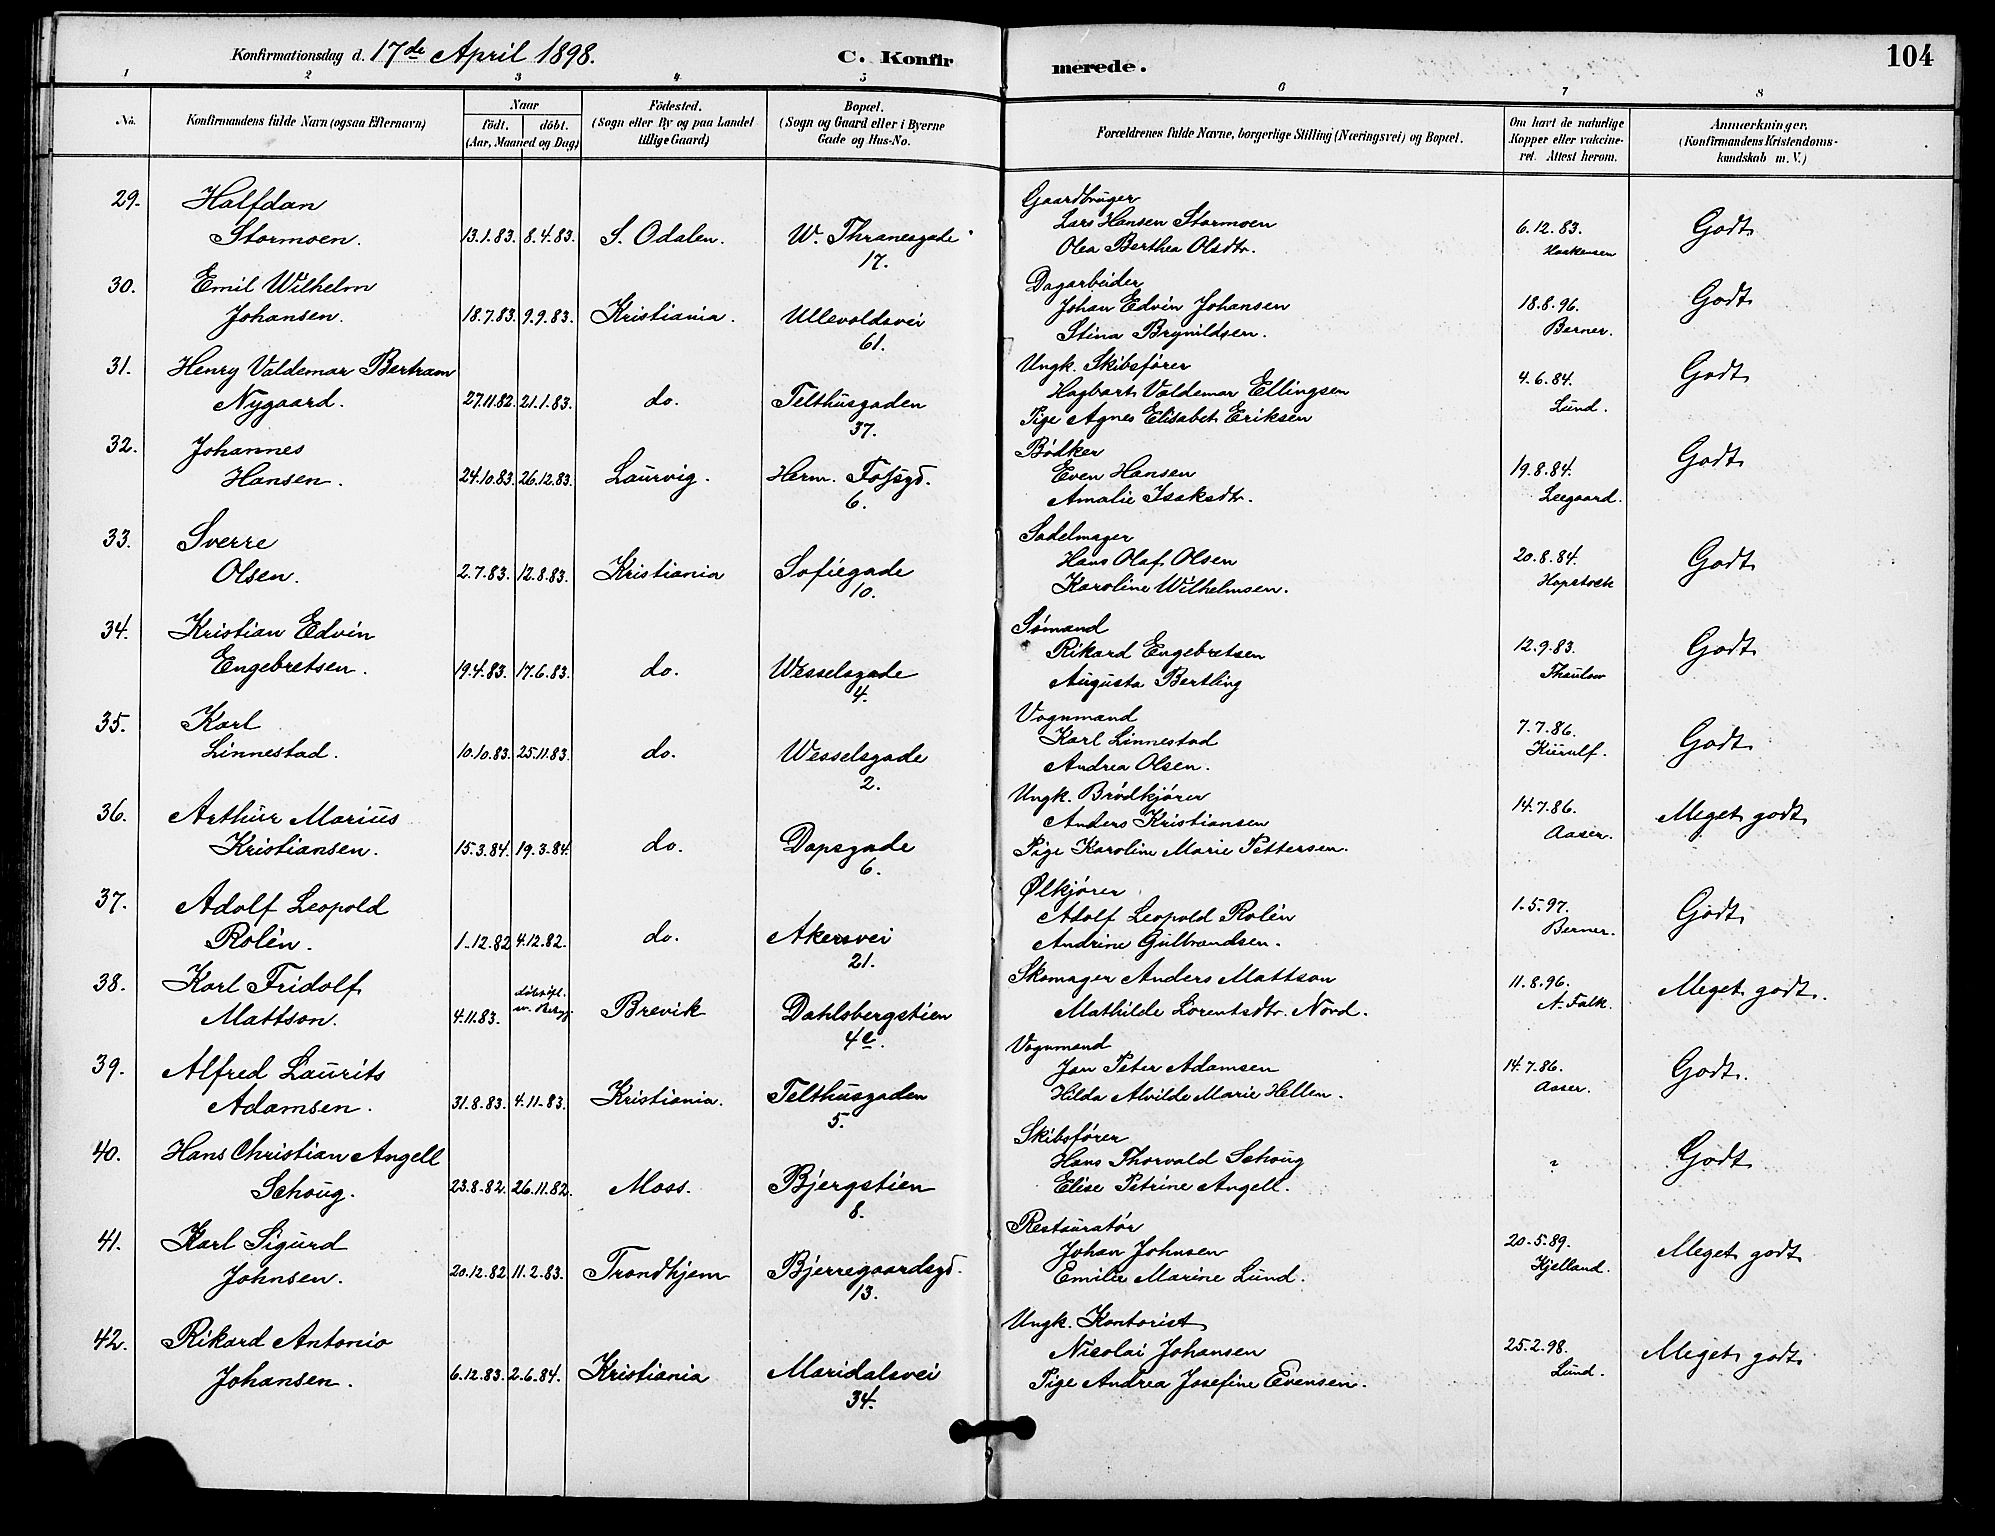 Konfirmationsdag d. 17de April 1898.
C. Konfirmerede.
104
1 2 3 4 5 6 7 8
No. Konfirmandens fulde Navn (ogsaa Efternavn) Naar født. døbt. (Aar, Maaned og Dag) Fødested. (Sogn eller By og paa Landet tillige Gaard) Bopæl. (Sogn og Gaard eller i Byerne Gade og Hus-No. Forældrenes fulde Navne, borgerlige Stilling (Næringsvei) og Bopæl. Om havt de naturlige Kopper eller vakcineret. Attest herom. Anmærkninger. (Konfirmandens Kristendomskundskab m. V.)
29. Halfdan Gaardbruger
Stormoen. 13.1.83. 8.4.83. S. Odalen. W. Thranesgade Lars Hansen Stormoen 6.12.83. Godt
17. Olea Berthea Olsdtr. Haakensen
30. Emil Wilhelm Dagarbeider
Johansen. 18.7.83. 9.9.83. Kristiania. Ullevoldsvei Johan Edvin Johansen 18.8.96. Godt
61. Stina Brynildsen. Berner.
31. Henry Valdemar Bertram Ungk. Skibsfører
Nygaard. 27.11.82. 21.1.83. do. Telthusgaden Hagbart Valdemar Ellingsen 4.6.84. Godt
37. Pige Agnes Elisabet Eriksen Lund.
32. Johannes Bødker
Hansen. 24.10.83. 26.12.83. Laurvig. Herm. Fossgd. Even Hansen 19.8.84. Godt
6. Amalie Isaksdtr. Leegaard.
33. Sverre Sadelmager
Olsen. 2.7.83. 12.8.83. Kristiania Sofiegade Hans Olaf Olsen 20.8.84. Godt
10. Karoline Wilhelmsen. Hopstock
34. Kristian Edvin Sømand
Engebretsen. 19.4.83. 17.6.83. do. Wesselsgade Rikard Engebretsen 12.9.83. Godt
4. Augusta Bertling Thaulow
35. Karl Vognmand
Linnestad. 10.10.83. 25.11.83. do. Wesselsgade Karl Linnestad 7.7.86. Godt
2. Andrea Olsen. Kierulf.
36. Arthur Marius Ungk. Brødkjører
Kristiansen. 15.3.84. 19.3.84. do. Dopsgade Anders Kristiansen 14.7.86. Meget godt
6. Pige Karoline Marie Pettersen. Aaser.
37. Adolf Leopold Ølkjører
Rolén. 1.12.82 4.12.82. do. Akersvei Adolf Leopold Rolén 1.5.97. Godt
21. Andrine Gulbrandsen. Berner.
38. Karl Fridolf Skomager Anders Mattson 11.8.96. Meget godt.
Mattson. 4.11.83. Brevik Dahlsbergstien Mathilde Lorentsdtr. Nord. A. Falk.
4e.
39. Alfred Laurits Vognmand
Adamsen. 31.8.83. 4.11.83. Kristiania. Telthusgaden Jan Peter Adamsen 14.7.86. Godt.
5. Hilda Alvilde Marie Hellen. Aaser.
40. Hans Christian Angell Skibsfører
Schoug. 23.8.82. 26.11.82. Moss. Bjergstien Hans Thorvald Schoug Godt
8. Elise Petrine Angell.
41. Karl Sigurd Restauratør
Johnsen. 20.12.82 11.2.83. Trondhjem Bjerregaardsgd. Johan Johnsen 20.5.89. Meget godt
13. Emilie Marine Lund. Kjelland.
42. Rikard Antonio Ungk. Kontorist
Johansen. 6.12.83. 2.6.84. Kristiania Maridalsvei Nicolai Johansen 25.2.98. Meget godt
34. Pige Andrea Josefine Evensen. Lund.